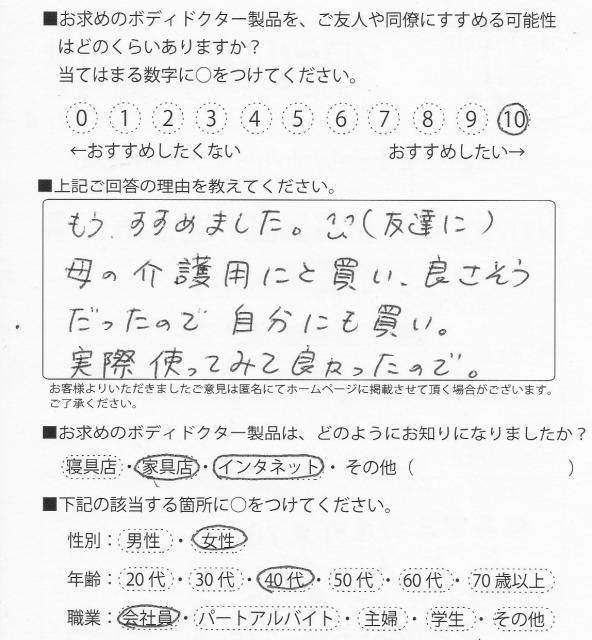 ■お求めのボディドクター製品を、ご友人や同僚にすすめる可能性
はどのくらいありますか？
当てはまる数字に○をつけてください。
0 1 2 3 4 5 6 7 8 9 10
←おすすめしたくない おすすめしたい→
■上記ご回答の理由を教えてください。
もう、すすめました。(友達に)
母の介護用にと買い、良さそう
だったので 自分にも買い。
実際使ってみて良かったので。
お客様よりいただきましたご意見は匿名にてホームページに掲載させて頂く場合がございます。
ご了承ください。
■お求めのボディドクター製品は、どのようにお知りになりましたか？
寝具店・家具店・インタネット・その他（ ）
■下記の該当する箇所に○をつけてください。
性別：男性・女性
年齢：20代・30代・40代・50代・60代・70歳以上
職業：会社員・パートアルバイト・主婦・学生・その他